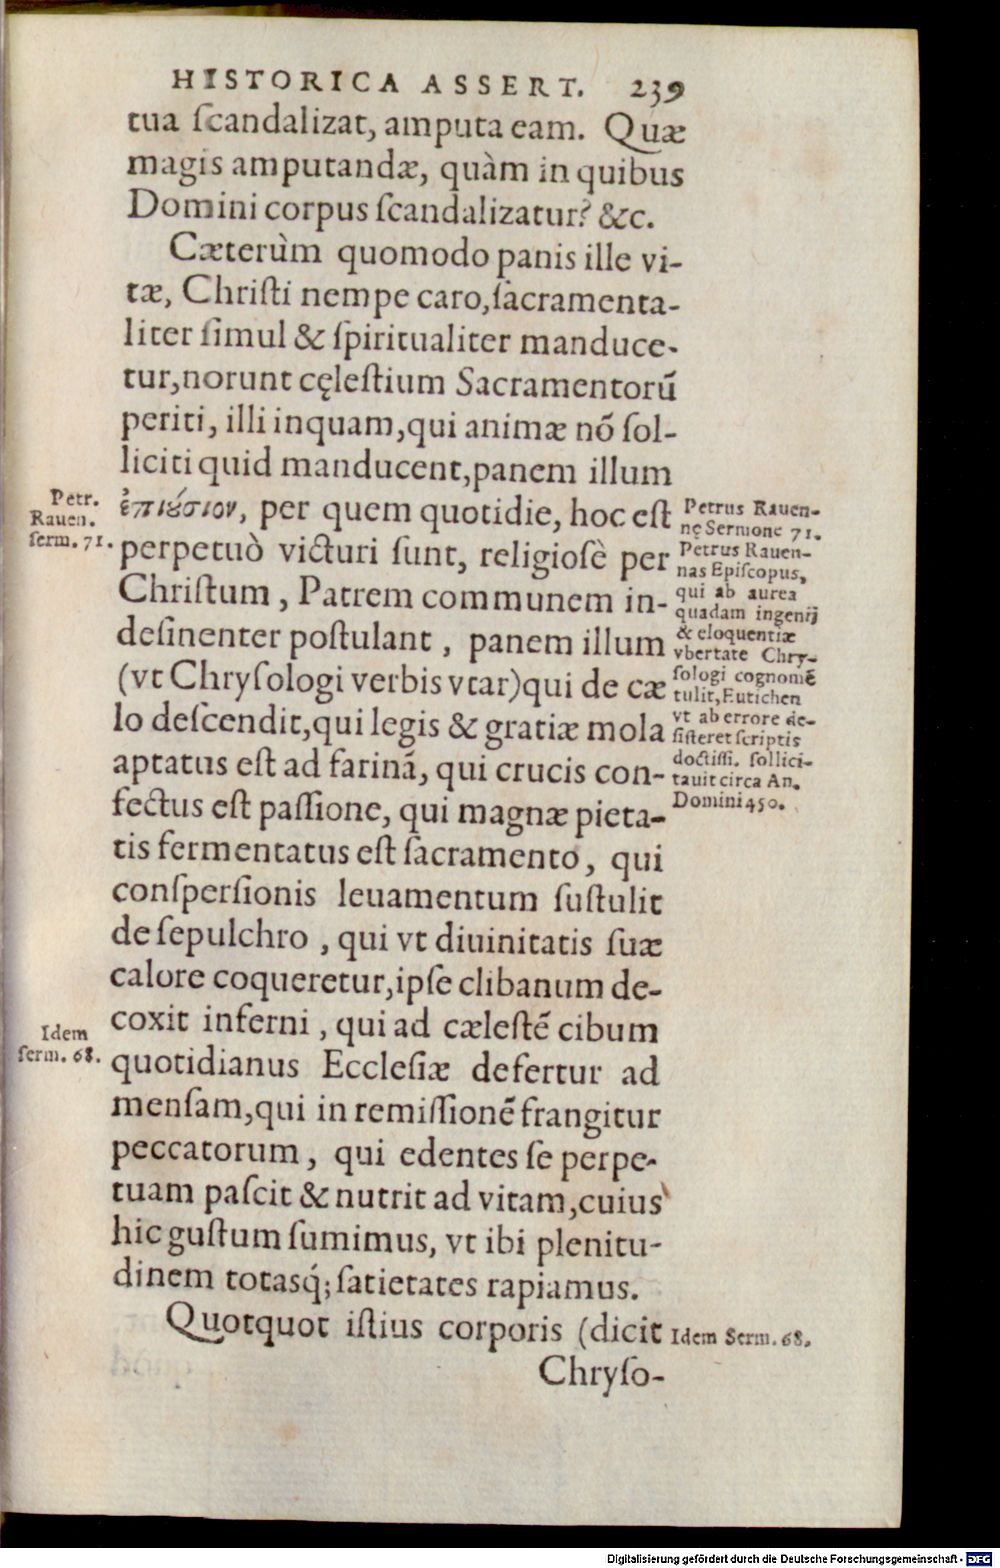 HISTORICA ASSERT. 239
tua ſcandalizat, amputa eam. Quæ
magis amputandæ, quàm in quibus
Domini corpus ſcandalizatur? &c.
Cæterùm quomodo panis ille vi-
tæ, Chriſti nempe caro, ſacramenta-
liter ſimul & ſpiritualiter manduce-
tur, norunt cęleſtium Sacramentorū
periti, illi inquam, qui animæ nō ſol-
liciti quid manducent, panem illum
ἐπιούσιον, per quem quotidie, hoc eſt
perpetuò victuri ſunt, religioſè per
Chriſtum, Patrem communem in-
deſinenter poſtulant, panem illum
(vt Chryſologi verbis vtar) qui de cæ
lo deſcendit, qui legis & gratiæ mola
aptatus eſt ad farinā, qui crucis con-
fectus eſt paſſione, qui magnæ pieta-
tis fermentatus eſt ſacramento, qui
conſperſionis leuamentum ſuſtulit
de ſepulchro, qui vt diuinitatis ſuæ
calore coqueretur, ipſe clibanum de-
coxit inferni, qui ad cæleſtē cibum
quotidianus Eccleſiæ defertur ad
menſam, qui in remiſſionē frangitur
peccatorum, qui edentes ſe perpe-
tuam paſcit & nutrit ad vitam, cuius
hic guſtum ſumimus, vt ibi plenitu-
dinem totasq́; ſatietates rapiamus.
Quotquot iſtius corporis (dicit
Chryſo-
Petr.
Rauen.
ſerm. 71.
Idem
ſerm. 68.
Petrus Rauen-
nę Sermone 71.
Petrus Rauen-
nas Epiſcopus,
qui ab aurea
quadam ingenij
& eloquentiæ
vbertate Chry-
ſologi cognomē
tulit, Eutichen
vt ab errore de-
ſiſteret ſcriptis
doctiſſi. ſollici-
tauit circa An.
Domini 450.
Idem Serm. 68.
Digitalisierung gefördert durch die Deutsche Forschungsgemeinschaft - DFG